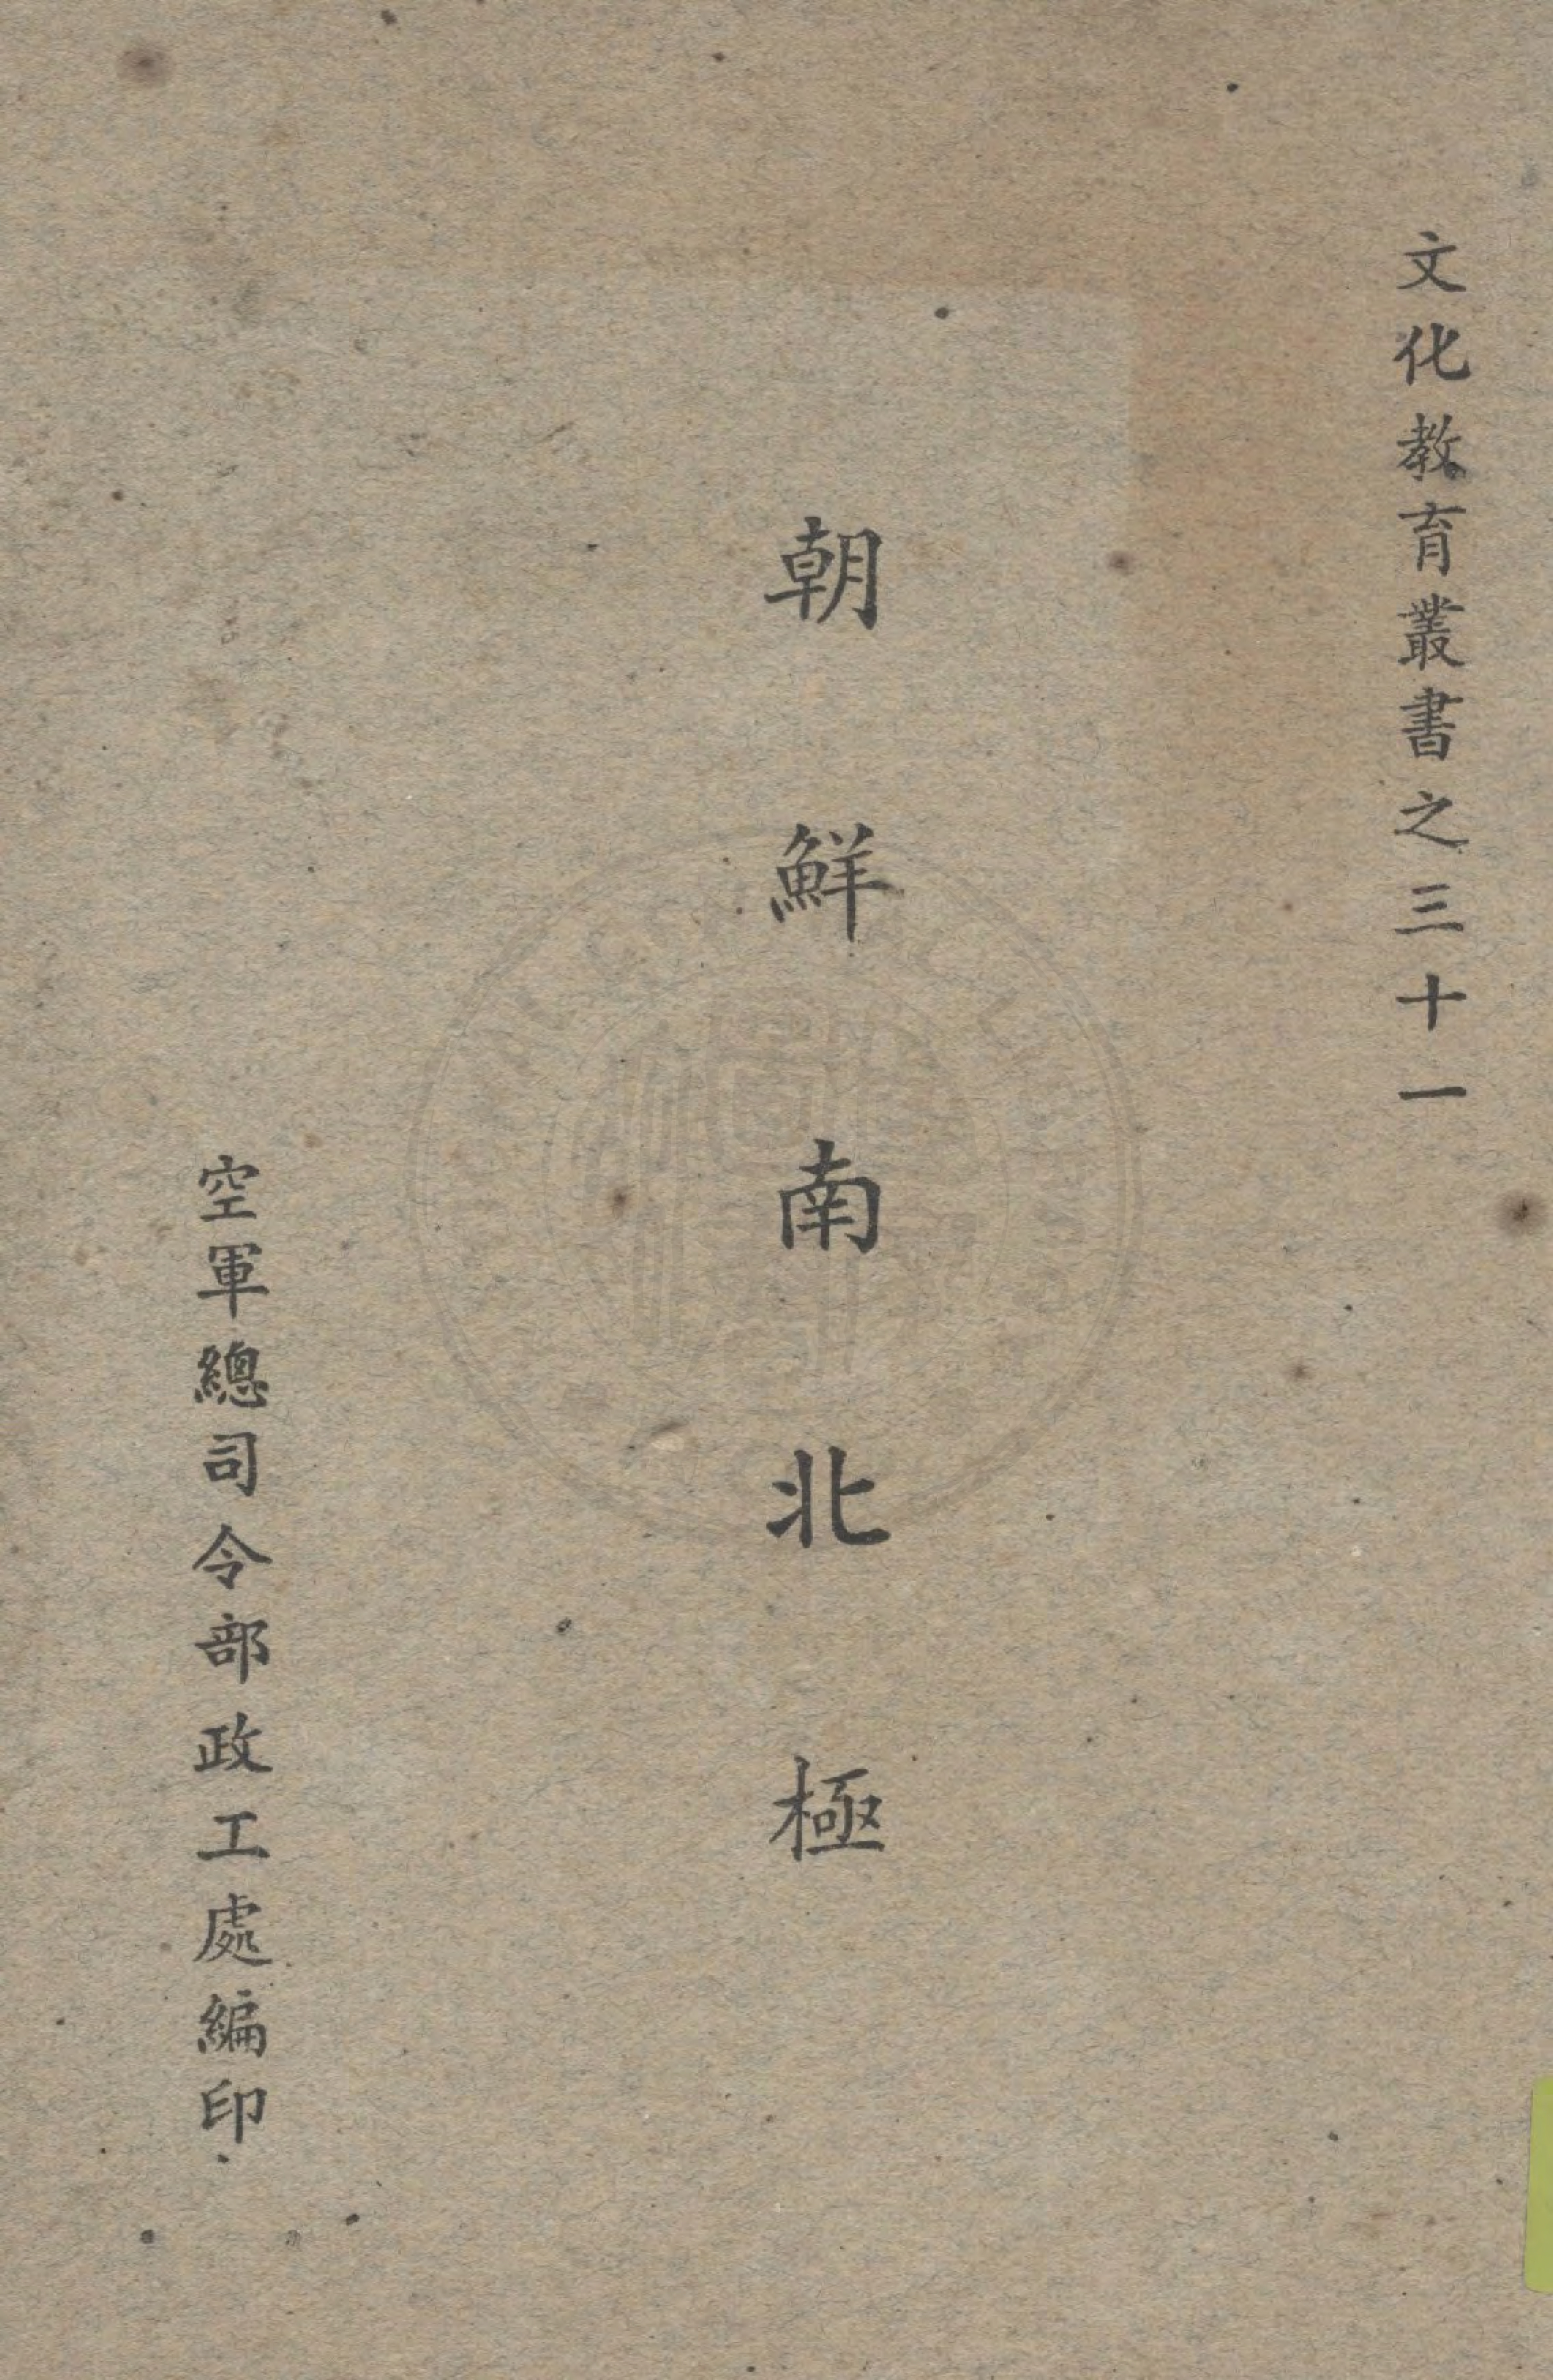 文化教育叢書之三十一
朝鮮南北極
空軍總司令部政工處編印